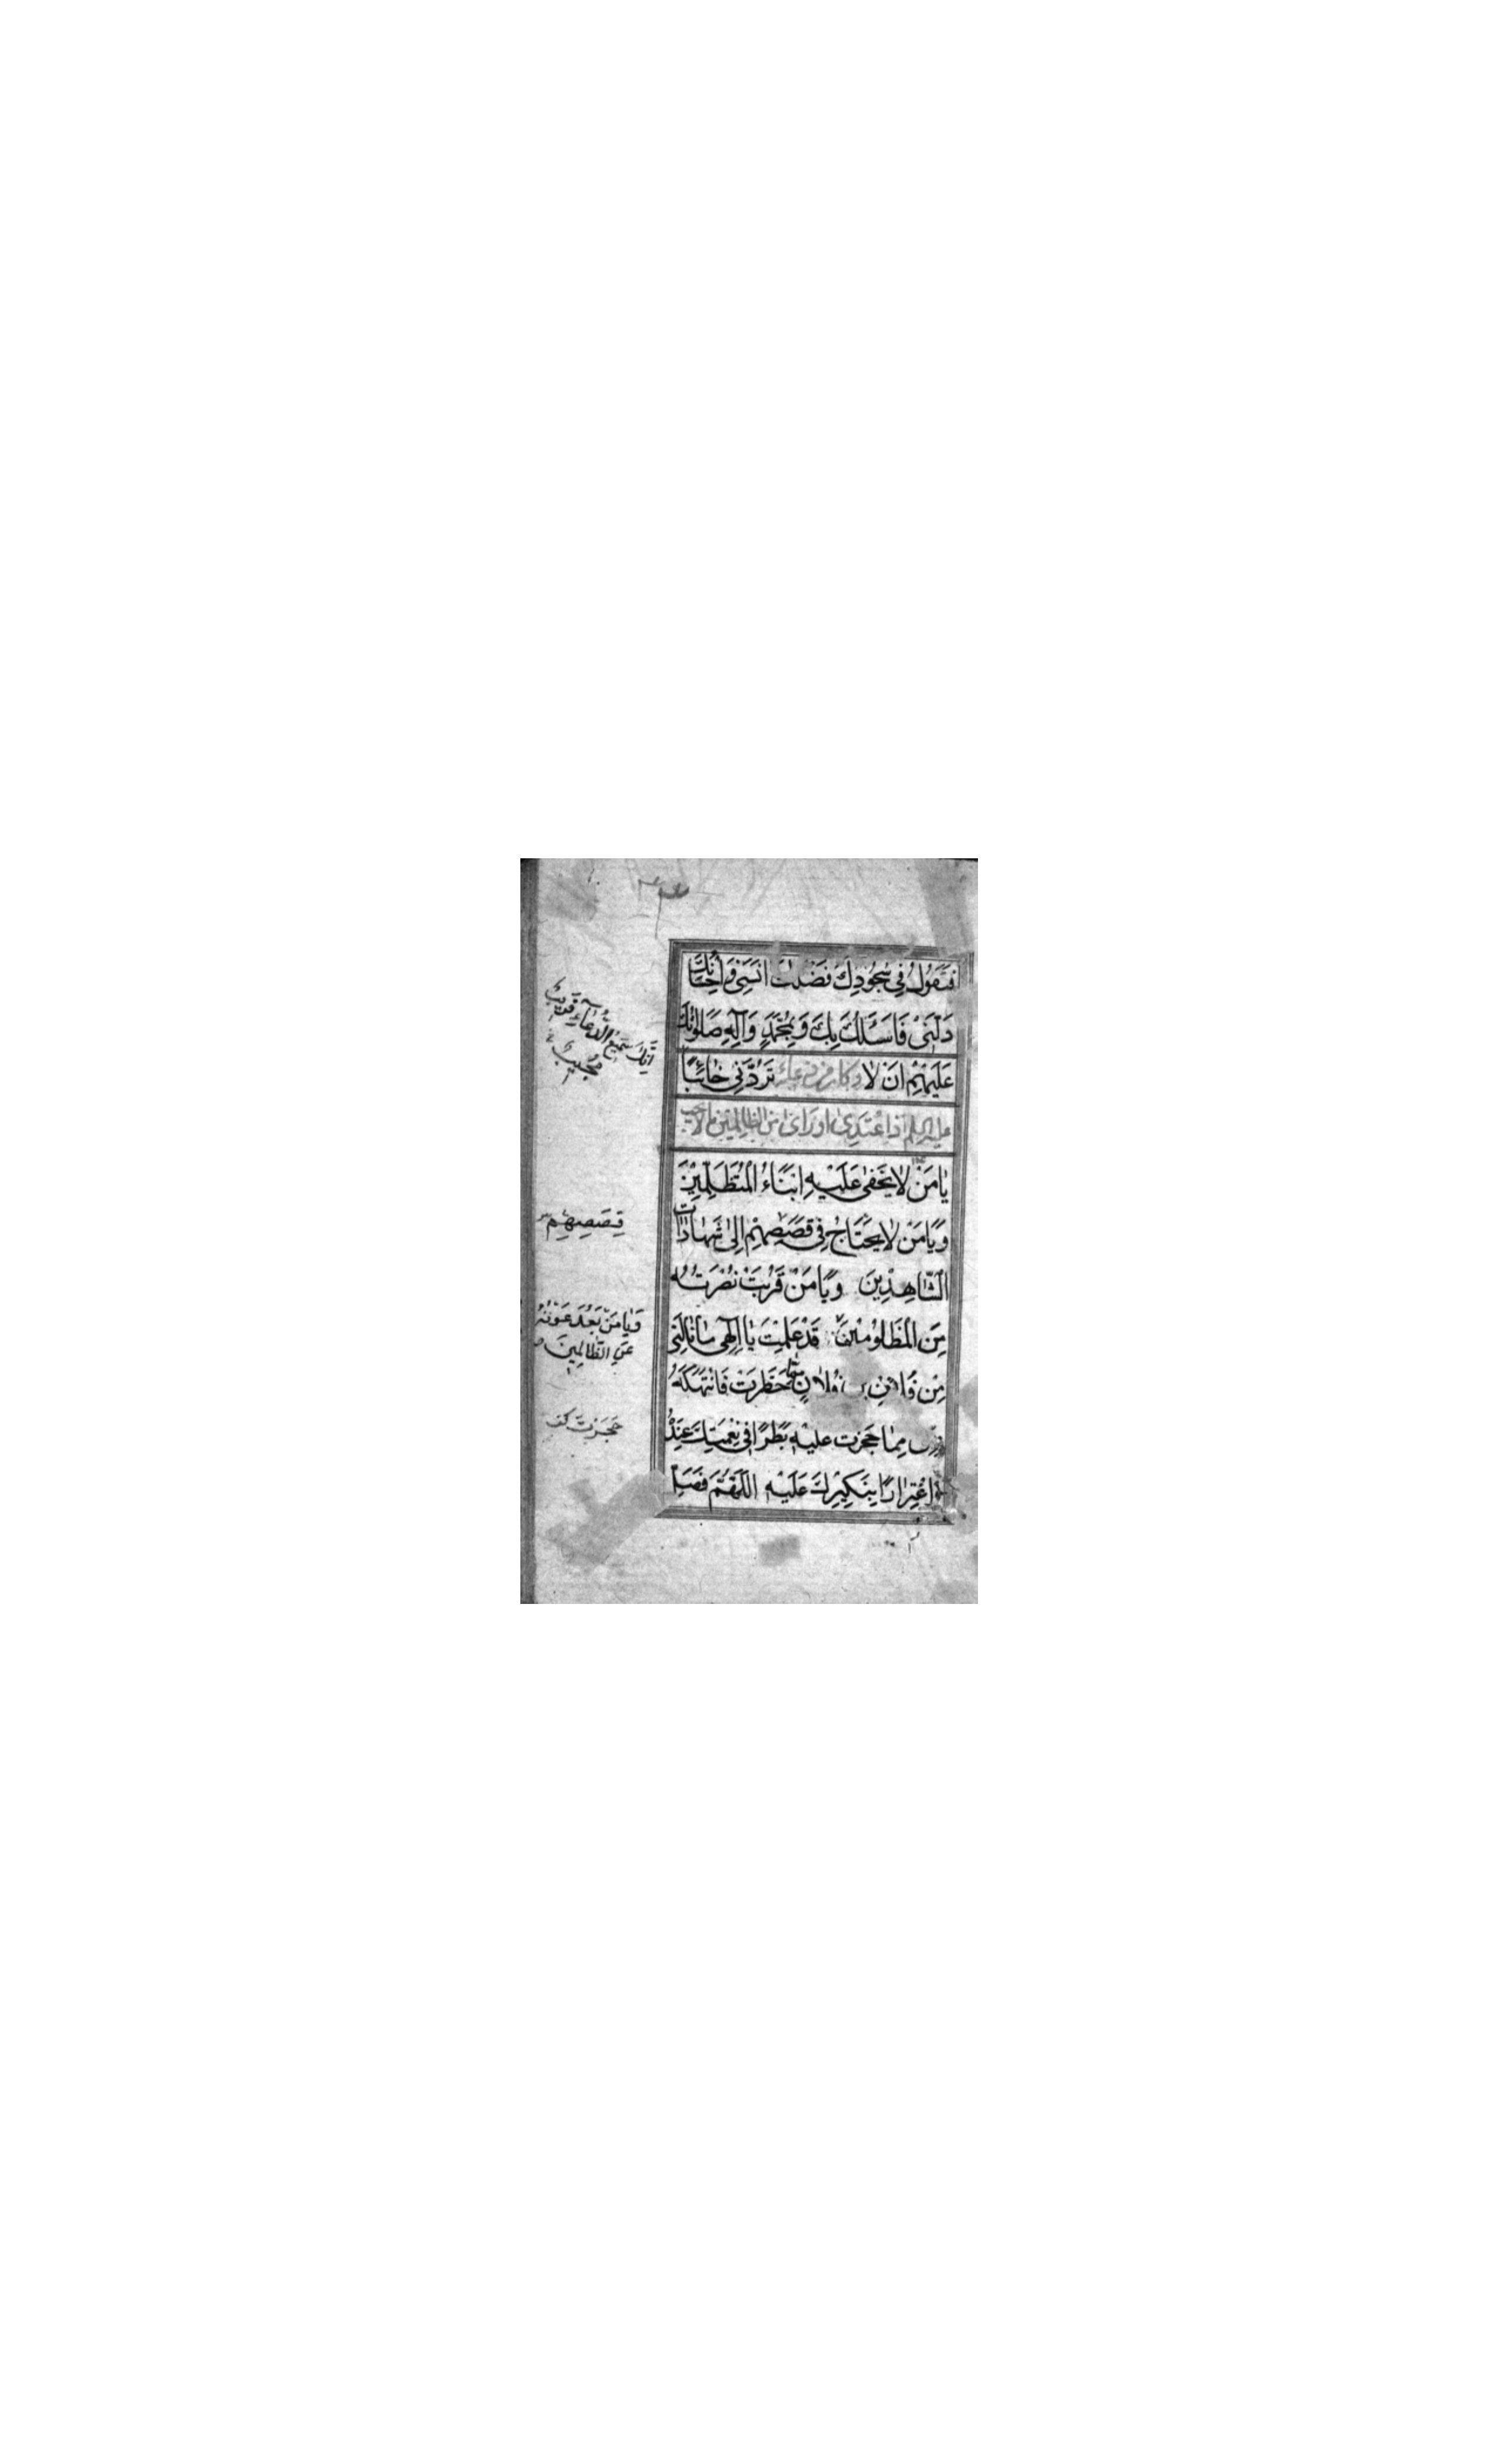 فَتَقُولُ فِي سُجُودِكَ فَضْلُكَ انَسَنِي وَاِحْسَانُكَ
دَلَّنِي فَاَسْئَلُكَ بِكَ وَبِمُحَمَّدٍ وَآلِهِ صَلَوَاتُكَ
عَلَيْهِمْ اَنْ لَا تَرُدَّنِي خَائِبًا
وكان من دعائه
عليه السلم اذا اعْتُدِيَ اورَاىٰ من الظالِمِينَ مالا يحب
يَا مَنْ لَا يَخْفىٰ عَلَيْهِ اَنْبَاءُ الْمُتَظَلِّمِيْنَ
وَيَا مَنْ لَا يَحْتَاجُ فِي قَصَصِهِمْ اِلىٰ شَهَادَاتِ
الشَّاهِدِينَ وَيَا مَنْ قَرُبَتْ نُصْرَتُهُ
مِنَ الْمَظْلُومْيِنَ قَدْ عَلِمْتَ يَا اِلٰهِي مَا نَالَنِي
مِنْ فُلَانِ بن فُلَانٍ مِمَّا حَظَرْتَ فَانْتَهَكَهُ
مِنّي مِمَا حَجَزْت عليْهِ بَطَرًا فِي نِعْمَتِكَ عِنْدَهُ
وَاغْتِرَارًا بِنَكِيْرِكَ عَلَيْهِ اللّٰهُمَّ فَصَلِّ
اِنَّكَ سَمِيعُ الدُّعَاءِ قَرِيبٌ
مُجِيبٌ
قِصَصِهِمْ
وَيَا مَنْ بَعُدَ عَوْنُهُ
عَنِ الظَّالِمِينَ
حَجَزْتَ